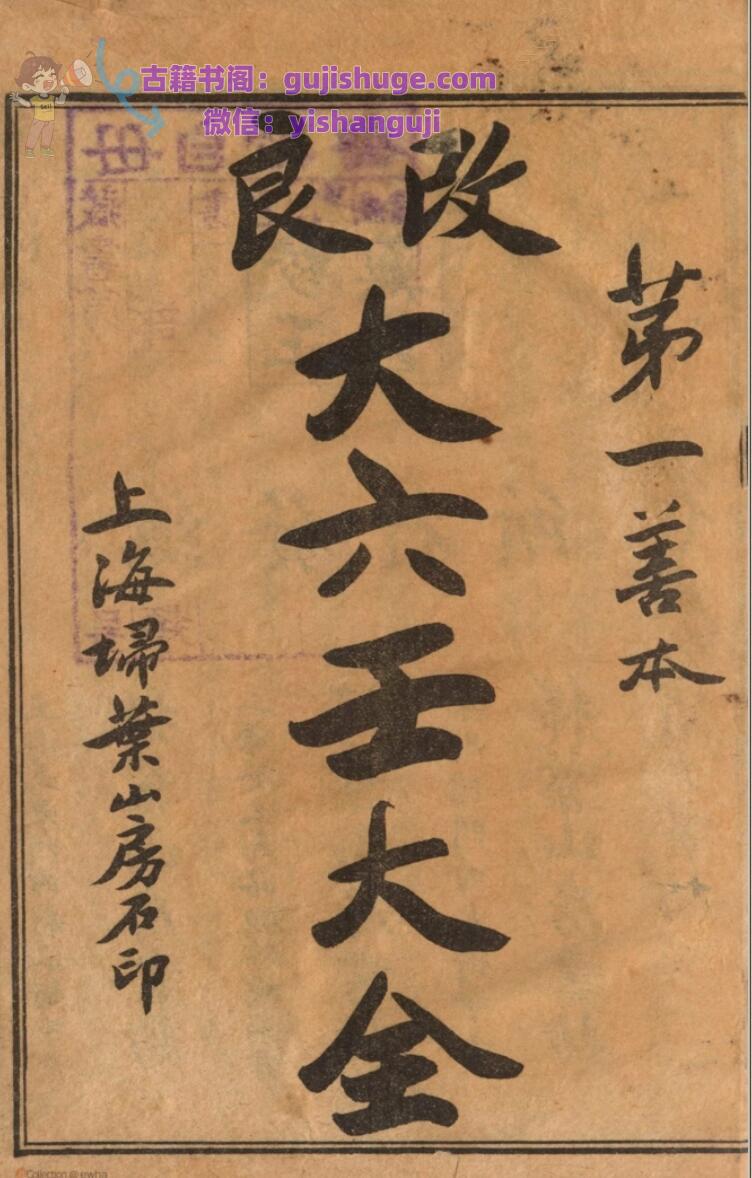 古籍书阁：gujishuge.com
微信：yishanguji
改良
第一善本
大六壬大全
上海埽葉山房石印
Collection @ ewha